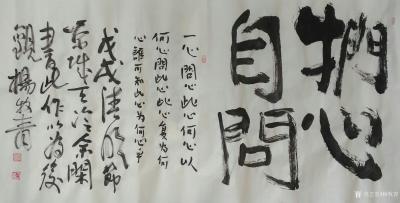 捫心
自問
一心問心此心何心以
何心問此心此心复為何
心誰可知此心為何心乎
戊戌清明節
京城天冷余閑
書此作以為後
觀楊牧青